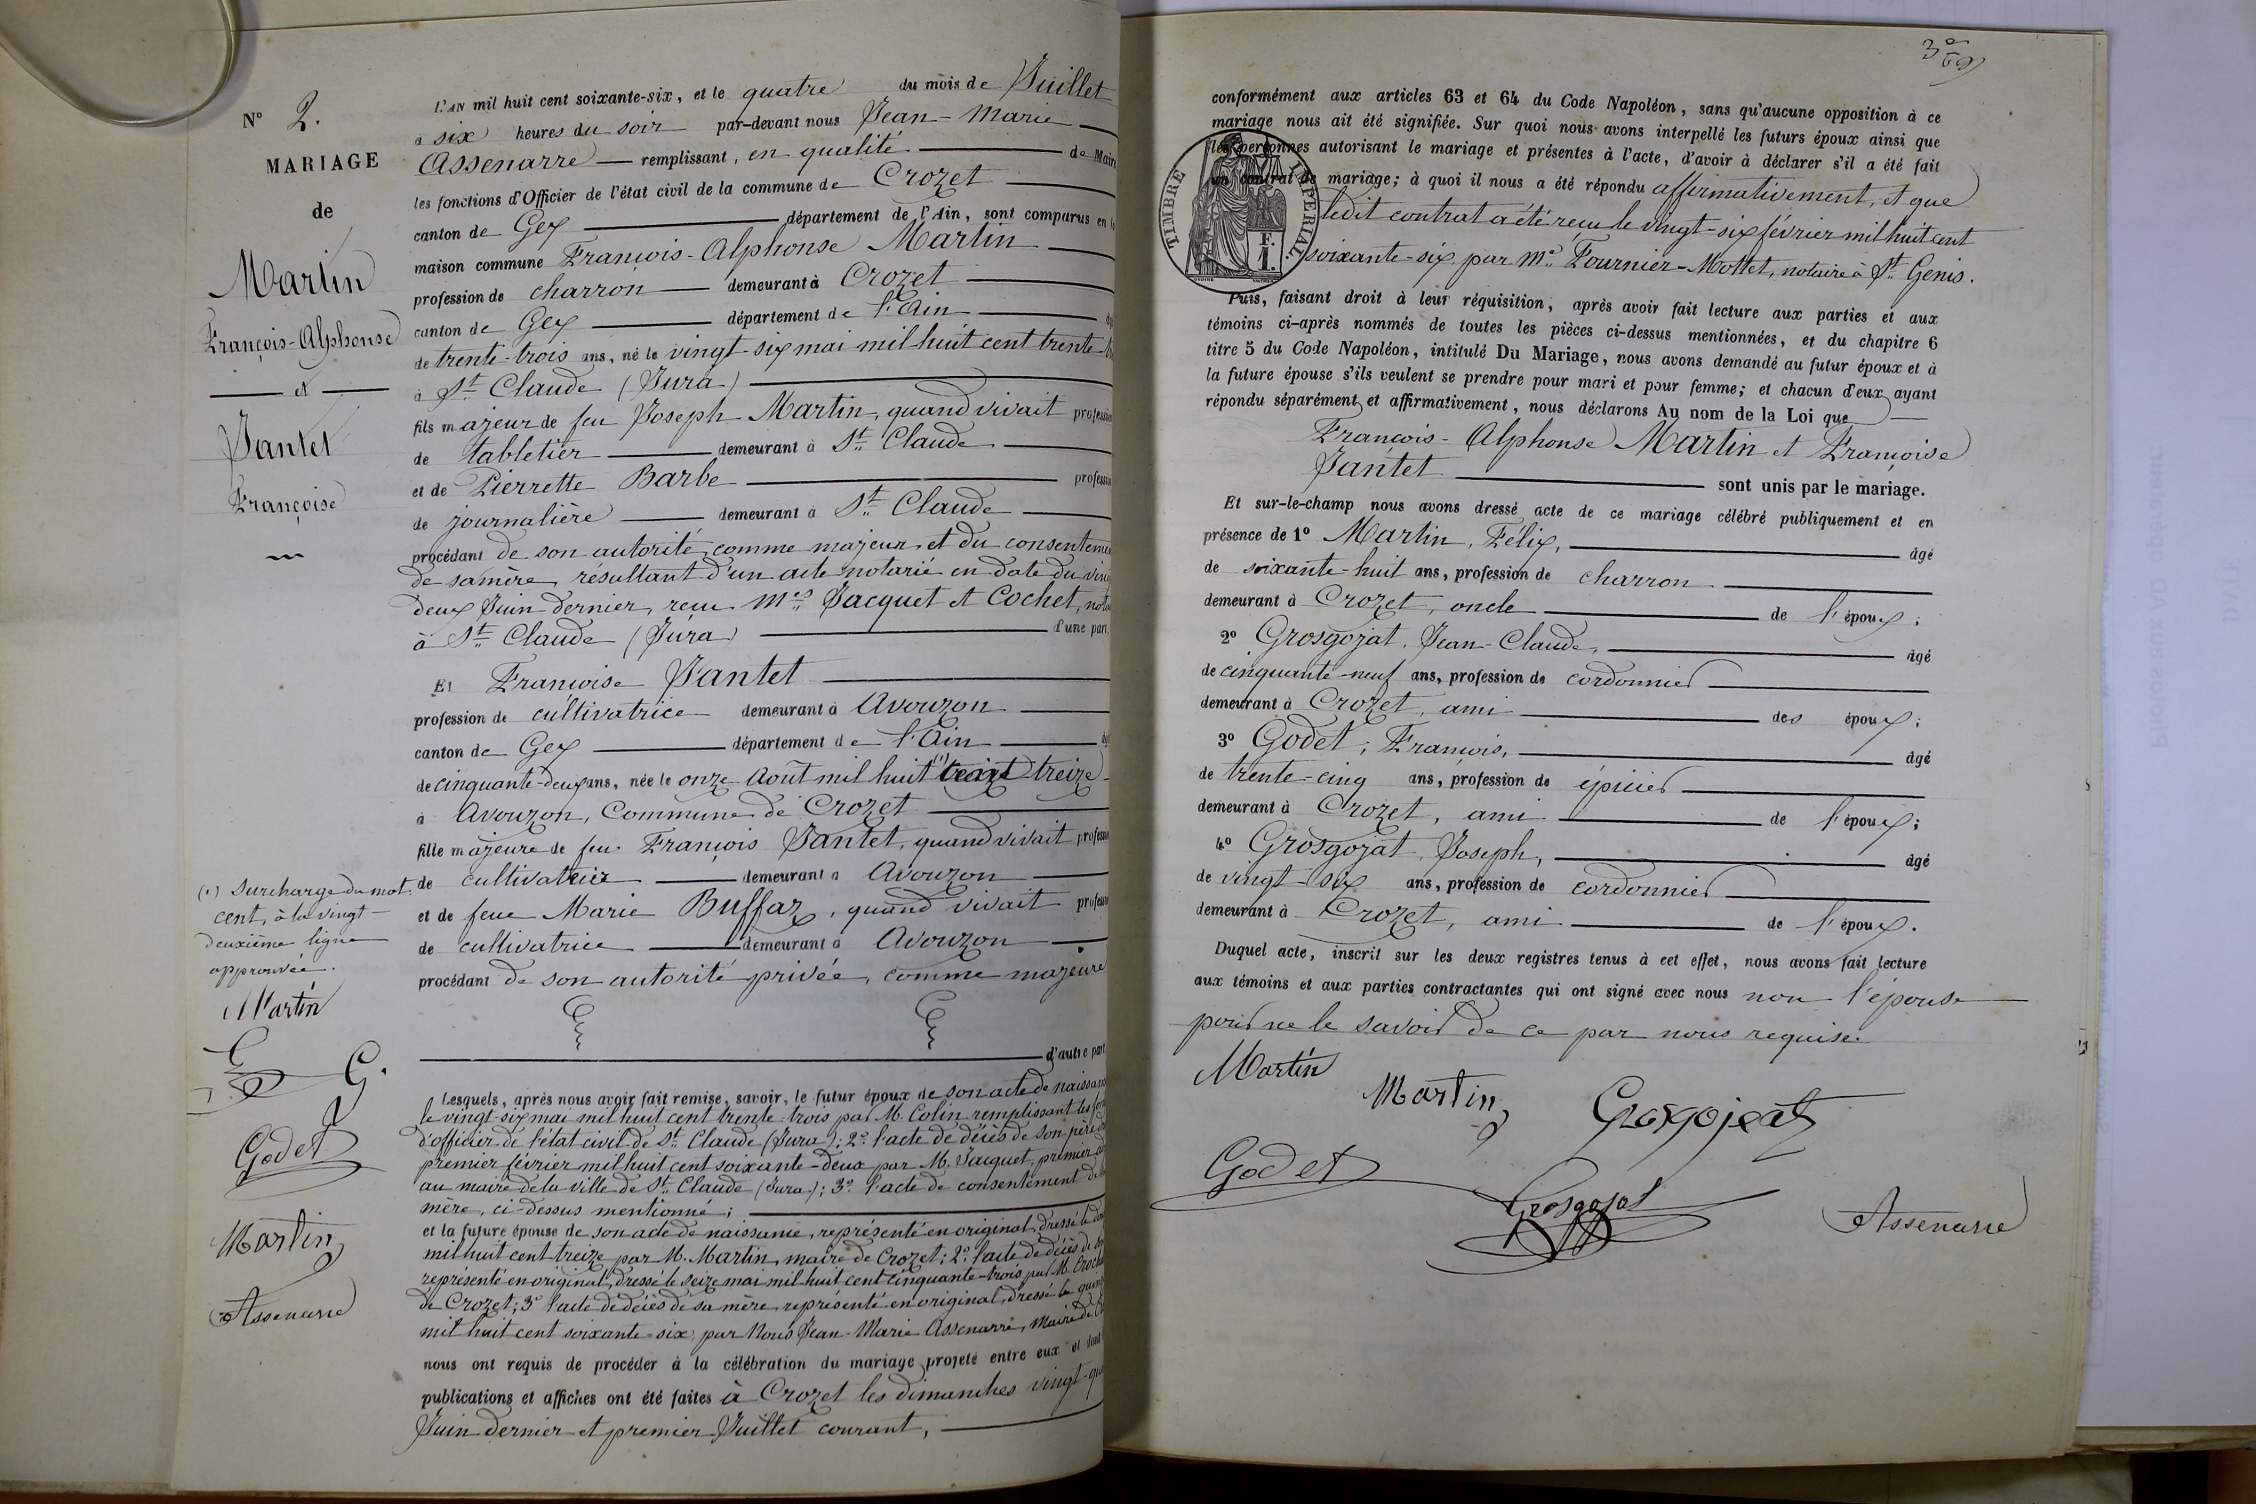 N° 2.
MARIAGE
de
Martin
François-Alphonse
et
Jantet
Françoise
L'AN mil huit cent soixante-six, et le quatre du mois de Juillet
à six heures du soir par-devant nous Jean-Marie
Assenarre remplissant, en qualité de Maire
les fonctions d'Officier de l'état civil de la commune de Crozet
canton de Gex département de l'Ain, sont comparus en la
maison commune François-Alphonse Martin
profession de charron demeurant à Crozet
canton de Gex département de l'Ain
de trente-trois ans, né le vingt-six mai mil huit cent trente-t
à St Claude (Jura)
fils majeur de feu Joseph Martin, quand vivait profession
de tabletier demeurant à St Claude
et de Pierrette Barbe profession
de journalière demeurant à St Claude
procédant de son autorité, comme majeur et du consenteme
de sa mère, résultant d'un acte notarié en date du ving
deux Juin dernier, reçu Mes Jacquet et Cochet, nota
à St Claude (Jura) d'une part.
Et Françoise Jantet
profession de cultivatrice demeurant à Avouzon
canton de Gex département de l'Ain
de cinquante-deux ans, née le onze Août mil huit (1) cent treize
à Avouzon, Commune de Crozet
fille majeure de feu François Jantet, quand vivait profession
de cultivateur demeurant à Avouzon
et de feue Marie Buffaz, quand vivait profession
de cultivatrice demeurant à Avouzon
procédant de son autorité privée, comme majeure
d'autre part
(1) Surcharge du mot
cent, à la vingt-
deuxième ligne
approuvée.
Martin
G.
Godet
Martin
Assenarre
Lesquels, après nous avoir fait remise, savoir, le futur époux de son acte de naissan
le vingt-six mai mil huit cent trente-trois par M. Colin remplissant les fon
d'officier de l'état civil de St Claude (Jura); 2° l'acte de décès de son père
premier février mil huit cent soixante-deux par M. Jacquet, premier
au maire de la ville de St Claude (Jura); 3° l'acte de consentement de
mère, ci-dessus mentionné;
et la future épouse de son acte de naissance, représenté en original, dressé le
mil huit cent treize par M. Martin, maire de Crozet; 2° l'acte de décès de
représenté en original, dressé le seize mai mil huit cent cinquante-trois par M.
de Crozet; 3° l'acte de décès de sa mère, représenté en original, dressé le
mil huit cent soixante-six, par Nous Jean-Marie Assenarre, Maire de
nous ont requis de procéder à la célébration du mariage projeté entre eux et dont
publications et affiches ont été faites à Crozet les dimanches vingt-qua
Juin dernier et premier Juillet courant,
conformément aux articles 63 et 64 du Code Napoléon, sans qu'aucune opposition à ce
mariage nous ait été signifiée. Sur quoi nous avons interpellé les futurs époux ainsi que
les personnes autorisant le mariage et présentes à l'acte, d'avoir à déclarer s'il a été fait
un contrat de mariage; à quoi il nous a été répondu affirmativement, et que
TIMBRE IMPERIAL.
F.
1.
ledit contrat a été reçu le vingt-six février mil huit cent
soixante-six par Me Fournier-Mottet, notaire à St Genis.
Puis, faisant droit à leur réquisition, après avoir fait lecture aux parties et aux
témoins ci-après nommés de toutes les pièces ci-dessus mentionnées, et du chapitre 6
titre 5 du Code Napoléon, intitulé Du Mariage, nous avons demandé au futur époux et à
la future épouse s'ils veulent se prendre pour mari et pour femme; et chacun d'eux ayant
répondu séparément et affirmativement, nous déclarons Au nom de la Loi que
François-Alphonse Martin et Françoise
Jantet sont unis par le mariage.
Et sur-le-champ nous avons dressé acte de ce mariage célébré publiquement et en
présence de 1° Martin, Félix, âgé
de soixante-huit ans, profession de charron
demeurant à Crozet, oncle de l'époux;
2° Grosgojat, Jean-Claude, âgé
de cinquante-neuf ans, profession de cordonnier
demeurant à Crozet, ami des époux;
3° Godet, François, âgé
de trente-cinq ans, profession de épicier
demeurant à Crozet, ami de l'époux;
4° Grosgojat, Joseph, âgé
de vingt-six ans, profession de cordonnier
demeurant à Crozet, ami de l'époux.
Duquel acte, inscrit sur les deux registres tenus à cet effet, nous avons fait lecture
aux témoins et aux parties contractantes qui ont signé avec nous non l'épouse
pour ne le savoir de ce par nous requise.
Martin
Martin
Grosgojeat
Godet
Grosgojat
Assenarre